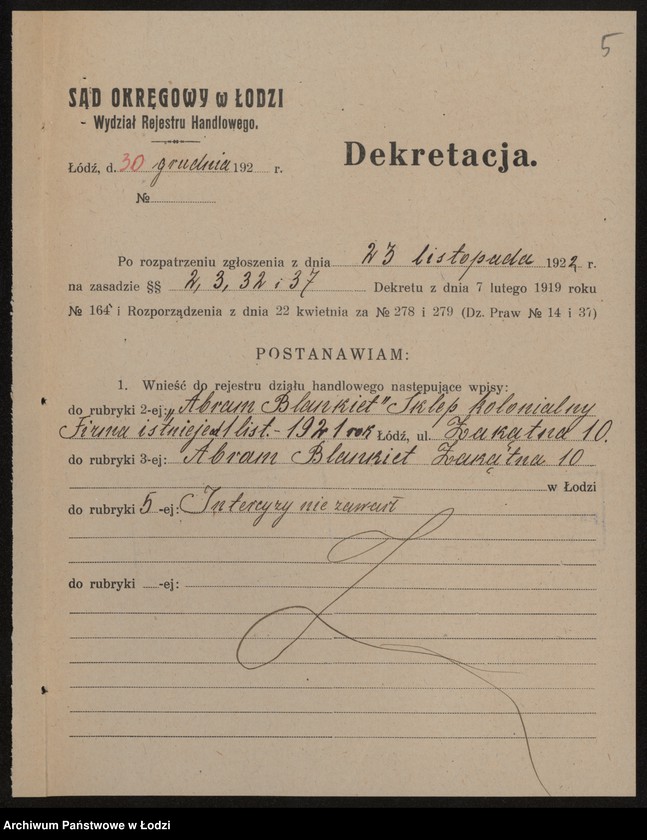 5
SĄD OKRĘGOWY w ŁODZI
- Wydział Rejestru Handlowego.
Dekretacja.
Łódź, d. 30 grudnia 192 r.
№
Po rozpatrzeniu zgłoszenia z dnia 23 listopada 1922 r.
na zasadzie §§ 2, 3, 32 i 37 Dekretu z dnia 7 lutego 1919 roku
№ 164 i Rozporządzenia z dnia 22 kwietnia za № 278 i 279 (Dz. Praw № 14 i 37)
POSTANAWIAM:
1. Wnieść do rejestru działu handlowego następujące wpisy:
do rubryki 2-ej: „Abram Blankiet" Sklep kolonialny
Firma istnieje od 1 list. - 1921 rok Łódź, ul. Zakątna 10.
do rubryki 3-ej: Abram Blankiet Zakątna 10
w Łodzi
do rubryki 5-ej: Intercyzy nie zawarł
do rubryki -ej:
Archiwum Państwowe w Łodzi